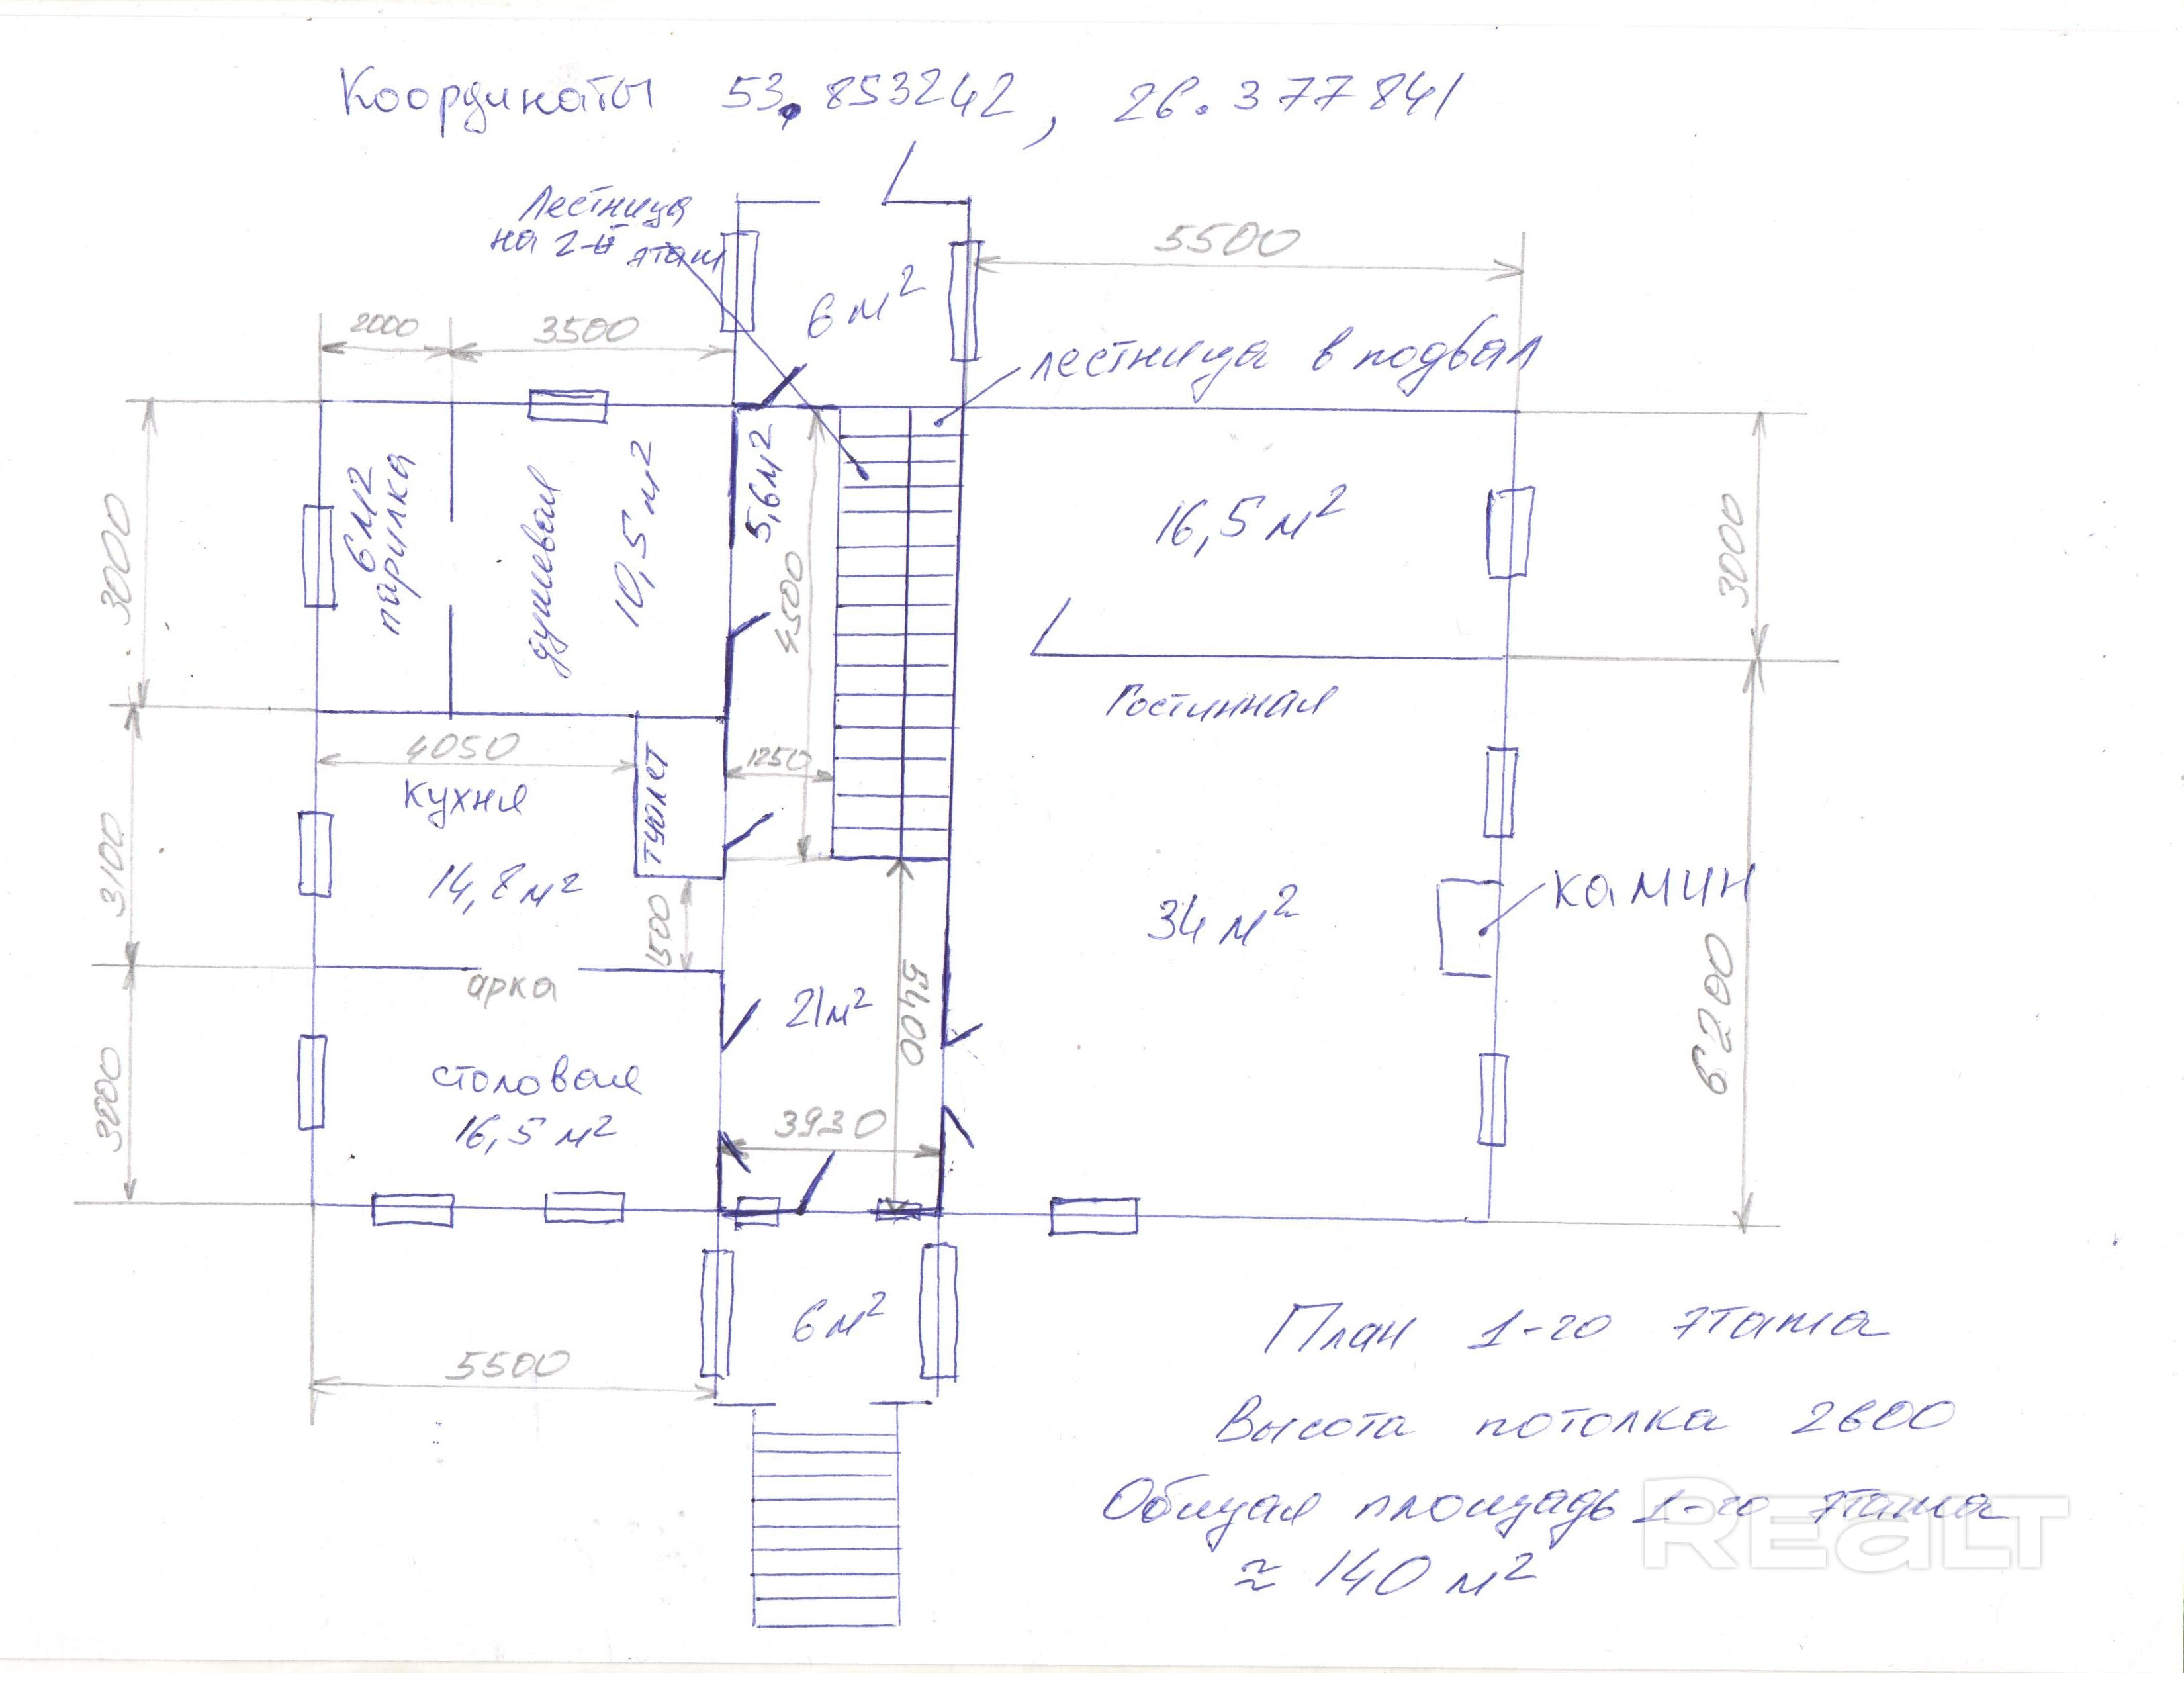 Координаты 53.853242, 26.377841
Лестница
на 2-й этаж
5500
6 м²
лестница в подвал
2000
3500
3000
6 м2
парилка
душевая
10,5 м²
5,6 м²
4500
16,5 м²
3000
Гостинная
4050
кухня
14,8 м²
туалет
1250
3100
1500
34 м²
камин
5400
6200
арка
21 м²
столовая
16,5 м²
3000
3930
6 м²
5500
План 1-го этажа
Высота потолка 2600
Общая площадь 1-го этажа
≈ 140 м²
REALT